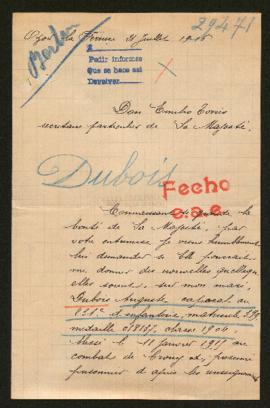 29471
Berlin
Juillet 1915
A
Pedir informes
Que se hace asi
Devolver
Don Emilio Torres
secretaire particulier de Sa Majesté.
Dubois
Fecho
Connaissant la
bonté de Sa Majesté, par
votre entremise je viens humblement
lui demander si Elle pourrait
me donner des nouvelles quelles qu'
elles soient, sur mon mari,
Dubois Auguste, caporal au
d'infanterie, matricule
médaille classe 1904.
Blessé le 11 Janvier 1915 au
combat de Crouy et, présumé
prisonnier d'après les